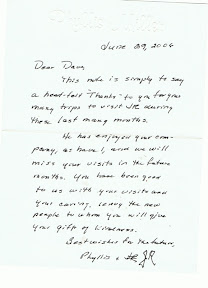 June 29, 2004
Dear Dave,
This note is simply to say
a heart-felt "Thanks" to you for your
many trips to visit JR during
these last many months.
He has enjoyed your com-
pany, as have I, and we will
miss your visits in the future
months. You have been good
to us with your visits and
your caring. Lucky the new
people to whom you will give
your gift of kindness.
Best wishes for the future,
Phyllis & JR